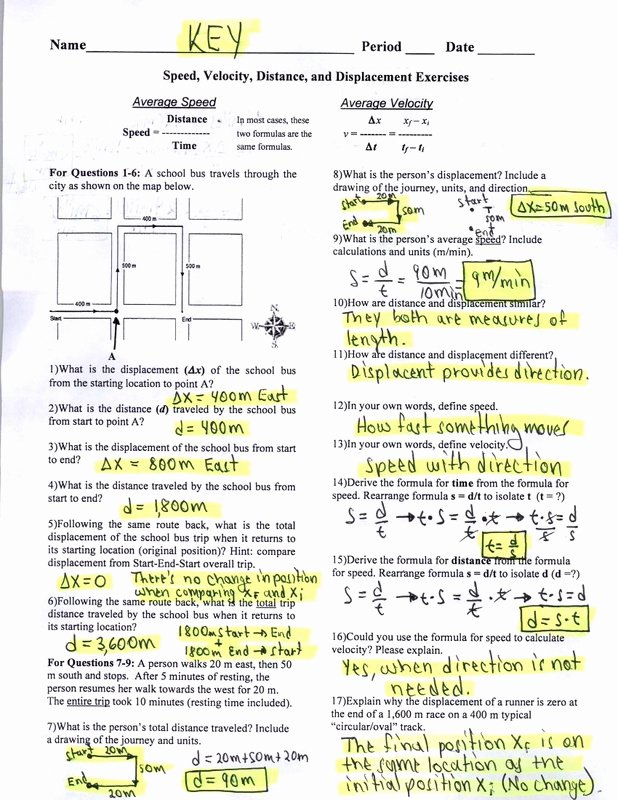 Name KEY Period Date
Speed, Velocity, Distance, and Displacement Exercises
Average Speed
Distance
Speed = -------------
Time
In most cases, these
two formulas are the
same formulas.
Average Velocity
Δx xf – xi
v = ------- = ---------
Δt tf – ti
For Questions 1-6: A school bus travels through the
city as shown on the map below.
400 m
500 m
500 m
400 m
Start
End
N
W E
S
A
1)What is the displacement (Δx) of the school bus
from the starting location to point A?
ΔX = 400m East
2)What is the distance (d) traveled by the school bus
from start to point A?
d = 400m
3)What is the displacement of the school bus from start
to end? ΔX = 800m East
4)What is the distance traveled by the school bus from
start to end?
d = 1,800m
5)Following the same route back, what is the total
displacement of the school bus trip when it returns to
its starting location (original position)? Hint: compare
displacement from Start-End-Start overall trip.
ΔX = 0 There's no change in position
when comparing XF and Xi
6)Following the same route back, what is the total trip
distance traveled by the school bus when it returns to
its starting location?
d = 3,600m
1800m Start → End
+
1800m End → Start
For Questions 7-9: A person walks 20 m east, then 50
m south and stops. After 5 minutes of resting, the
person resumes her walk towards the west for 20 m.
The entire trip took 10 minutes (resting time included).
7)What is the person's total distance traveled? Include
a drawing of the journey and units.
Start 20m
50m
End
20m
d = 20m+50m+20m
d = 90m
8)What is the person's displacement? Include a
drawing of the journey, units, and direction.
Start 20m
50m
End
20m
start
50m
end
ΔX=50m south
9)What is the person's average speed? Include
calculations and units (m/min).
S = d/t = 90m/10min = 9m/min
10)How are distance and displacement similar?
They both are measures of
length.
11)How are distance and displacement different?
Displacent provides direction.
12)In your own words, define speed.
How fast something moves
13)In your own words, define velocity.
Speed with direction
14)Derive the formula for time from the formula for
speed. Rearrange formula s = d/t to isolate t (t = ?)
S = d/t → t·S = d/t · t → t·s/s = d/s
t = d/s
15)Derive the formula for distance from the formula
for speed. Rearrange formula s = d/t to isolate d (d =?)
S = d/t → t·S = d/t · t → t·S=d
d = s·t
16)Could you use the formula for speed to calculate
velocity? Please explain.
Yes, when direction is not
needed.
17)Explain why the displacement of a runner is zero at
the end of a 1,600 m race on a 400 m typical
"circular/oval" track.
The final position XF is on
the same location as the
initial position Xi (No change).